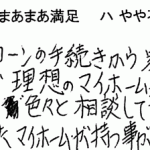 まあまあ満足 ハ やや
ローンの手続きから
理想のマイホーム
色々と相談して
マイホームが持つ事が